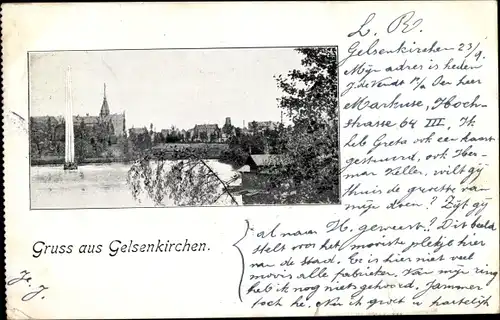 L. R.
Gelsenkirchen 23/9.
Mijn adres is heden
J. de Vendt p/a Den heer
Markuse, Hoch-
strasse 64 III. Ik
heb Greta ook een kaart
gestuurd, ook Her-
man Keller. wilt gij
thuis de groete van
mije doen? Zijt gij
al naar H. geweest? Dit beeld
stelt voor het mooiste plekje hier
van de stad. Er is hier niet veel
moois alle fabrieken. Van mijn ring
heb ik nog niets gehoord. Jammer
toch he. Nu ik groet u hartelijk
Gruss aus Gelsenkirchen.